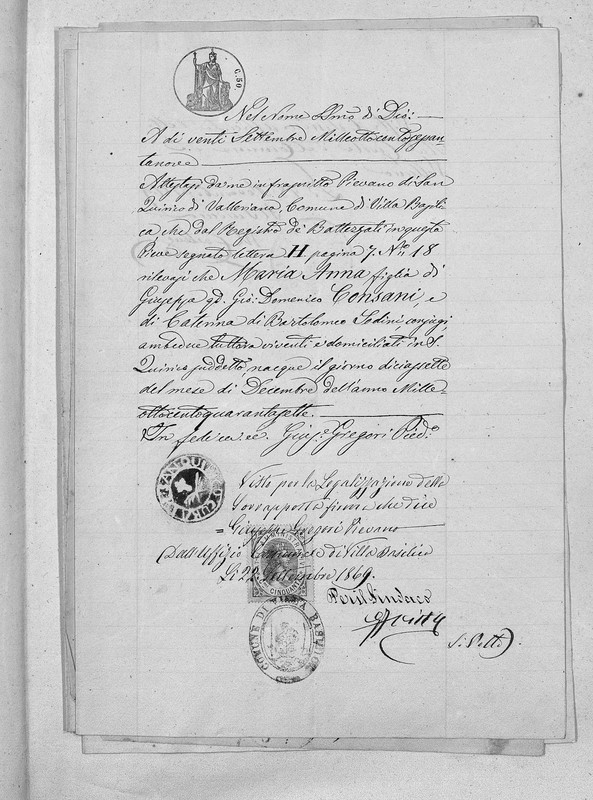 C. 50
Nel Nome SSmo di Dio:
A di venti Settembre Milleottocentosessan-
tanove
Attestasi da me infrascritto Pievano di San
Quirico di Valleriana, Comune di Villa Basili-
ca che dal Registro de Battezzati in questa
Pieve segnato lettera H pagina 7. No. 18
rilevasi che Maria Anna figlia di
Giuseppe qd. Gio: Domenico Consani, e
di Caterina di Bartolomeo Sodini, conjugi,
ambedue tuttora viventi e domiciliati in S.
Quirico suddetto, nacque il giorno diciassette
del mese di Decembre dell'anno Mille-
ottocentoquarantasette.
In fede ca. ec. Gius.e Gregori Pievo
Visto per la Legalizzazione della
Sovrapposta firma che dice
= Giuseppe Gregori Pievano
Dall'Uffizio Comunale di Villa Basilica
Li 22 Settembre 1869.
CINQUANTA
Per il Sindaco
COMUNE DI VILLA BASILICA